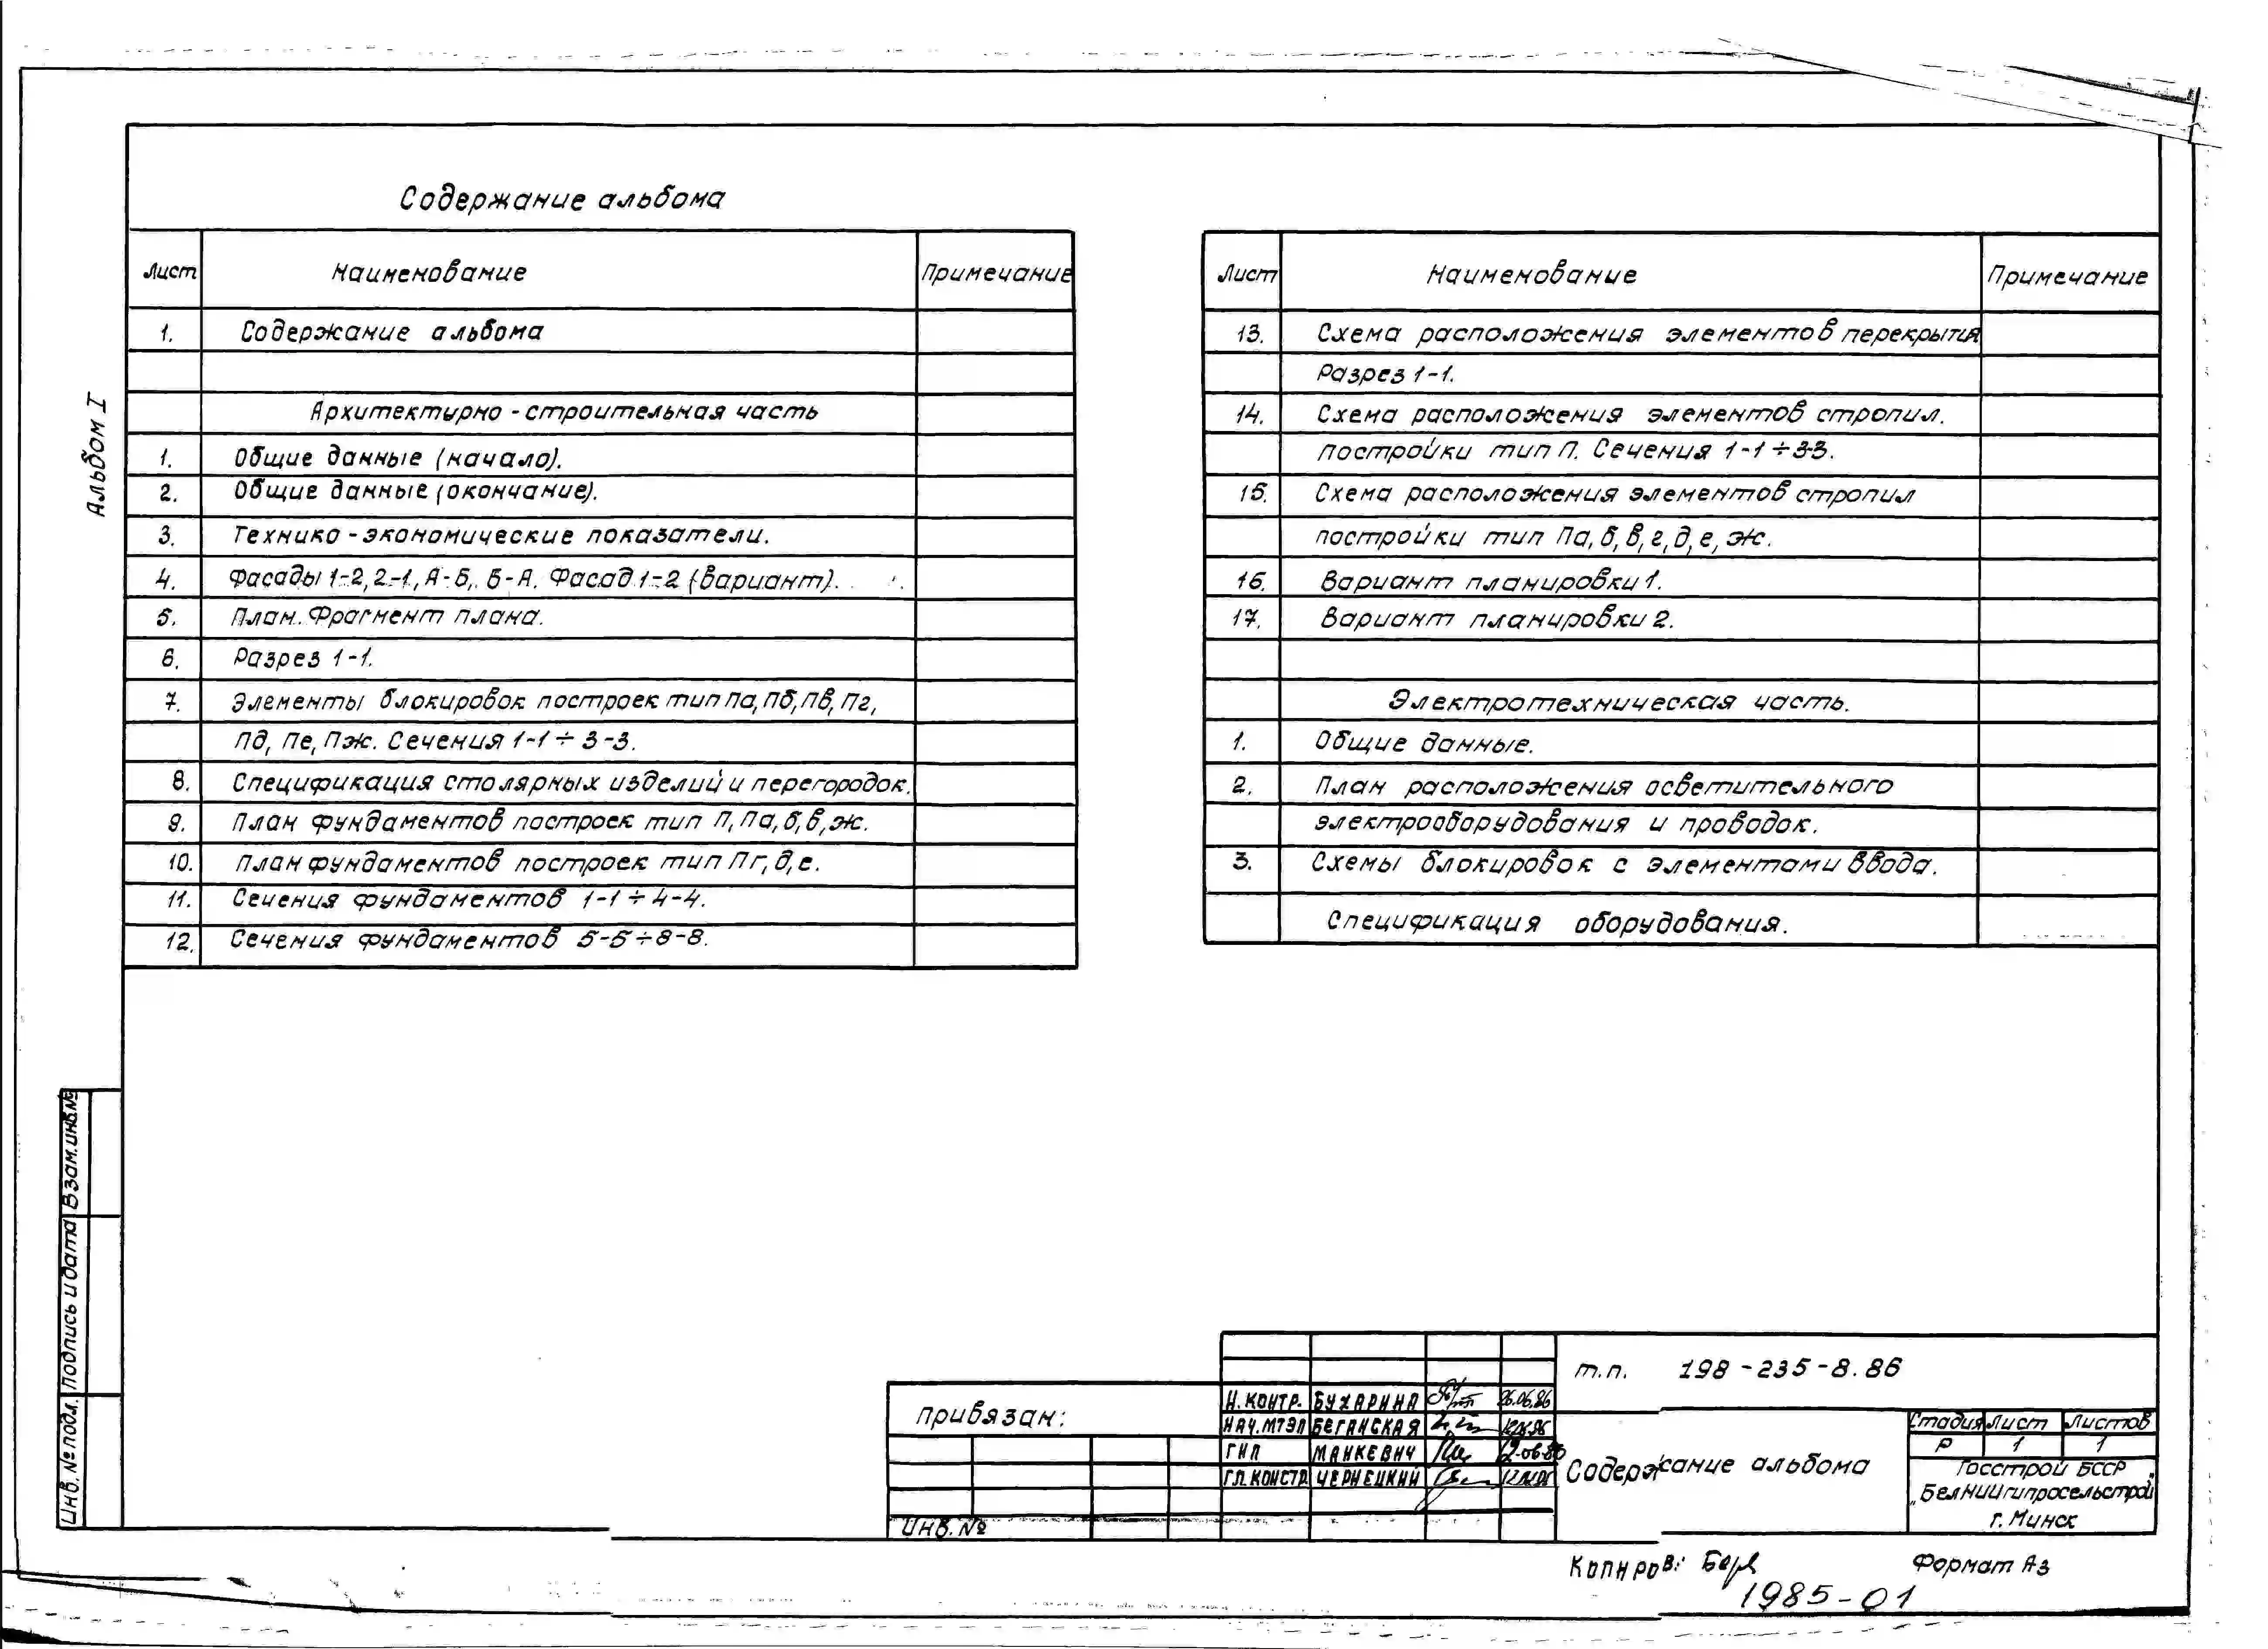 Содержание альбома
Лист Наименование Примечание
1. Содержание альбома
Архитектурно-строительная часть
1. Общие данные (начало).
2. Общие данные (окончание).
3. Технико-экономические показатели.
4. Фасады 1-2, 2-1, А-Б, Б-А. Фасад 1-2 (вариант).
5. План. Фрагмент плана.
6. Разрез 1-1.
7. Элементы блокировок построек тип Па, Пб, Пв, Пг,
Пд, Пе, Пж. Сечения 1-1 ÷ 3-3.
8. Спецификация столярных изделий и перегородок.
9. План фундаментов построек тип П, Па, б, в, ж.
10. План фундаментов построек тип Пг, д, е.
11. Сечения фундаментов 1-1 ÷ 4-4.
12. Сечения фундаментов 5-5 ÷ 8-8.
Лист Наименование Примечание
13. Схема расположения элементов перекрытия
Разрез 1-1.
14. Схема расположения элементов стропил.
постройки тип П. Сечения 1-1 ÷ 3-3.
15. Схема расположения элементов стропил
постройки тип Па, б, в, г, д, е, ж.
16. Вариант планировки 1.
17. Вариант планировки 2.
Электротехническая часть.
1. Общие данные.
2. План расположения осветительного
электрооборудования и проводок.
3. Схемы блокировок с элементами ввода.
Спецификация оборудования.
Альбом I
Взам.инв.№
Подпись и дата
Инв. № подл.
Привязан:
Инв. №
Н.КОНТР. БУХАРИНА 26.06.86
НАЧ.МТЭП БЕГАНСКАЯ
ГИП МАНКЕВИЧ 12.06.86
ГЛ.КОНСТР. ЧЕРНЕЦКИЙ
т.п. 198-235-8.86
Содержание альбома
Стадия Лист Листов
Р 1 1
Госстрой БССР
„БелНИИгипросельстрой"
г. Минск
Копиров:
Формат А3
1985-01